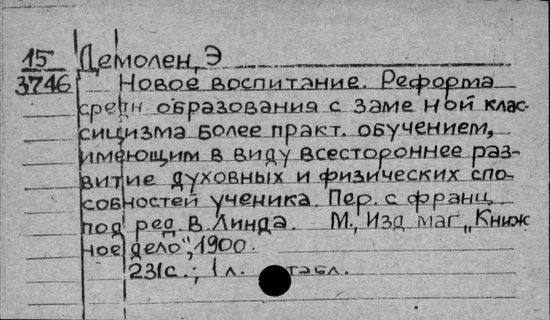 15 Демолен, Э
3746 Новое воспитание. Реформа
средн. образования с заменой клас-
сицизма более практ. обучением,
имеющим в виду всестороннее раз-
витие духовных и физических спо-
собностей ученика. Пер. с франц.
под ред. В. Линда. М., Изд маг „Книж
ное дело", 1900.
231с.; 1 л. табл.